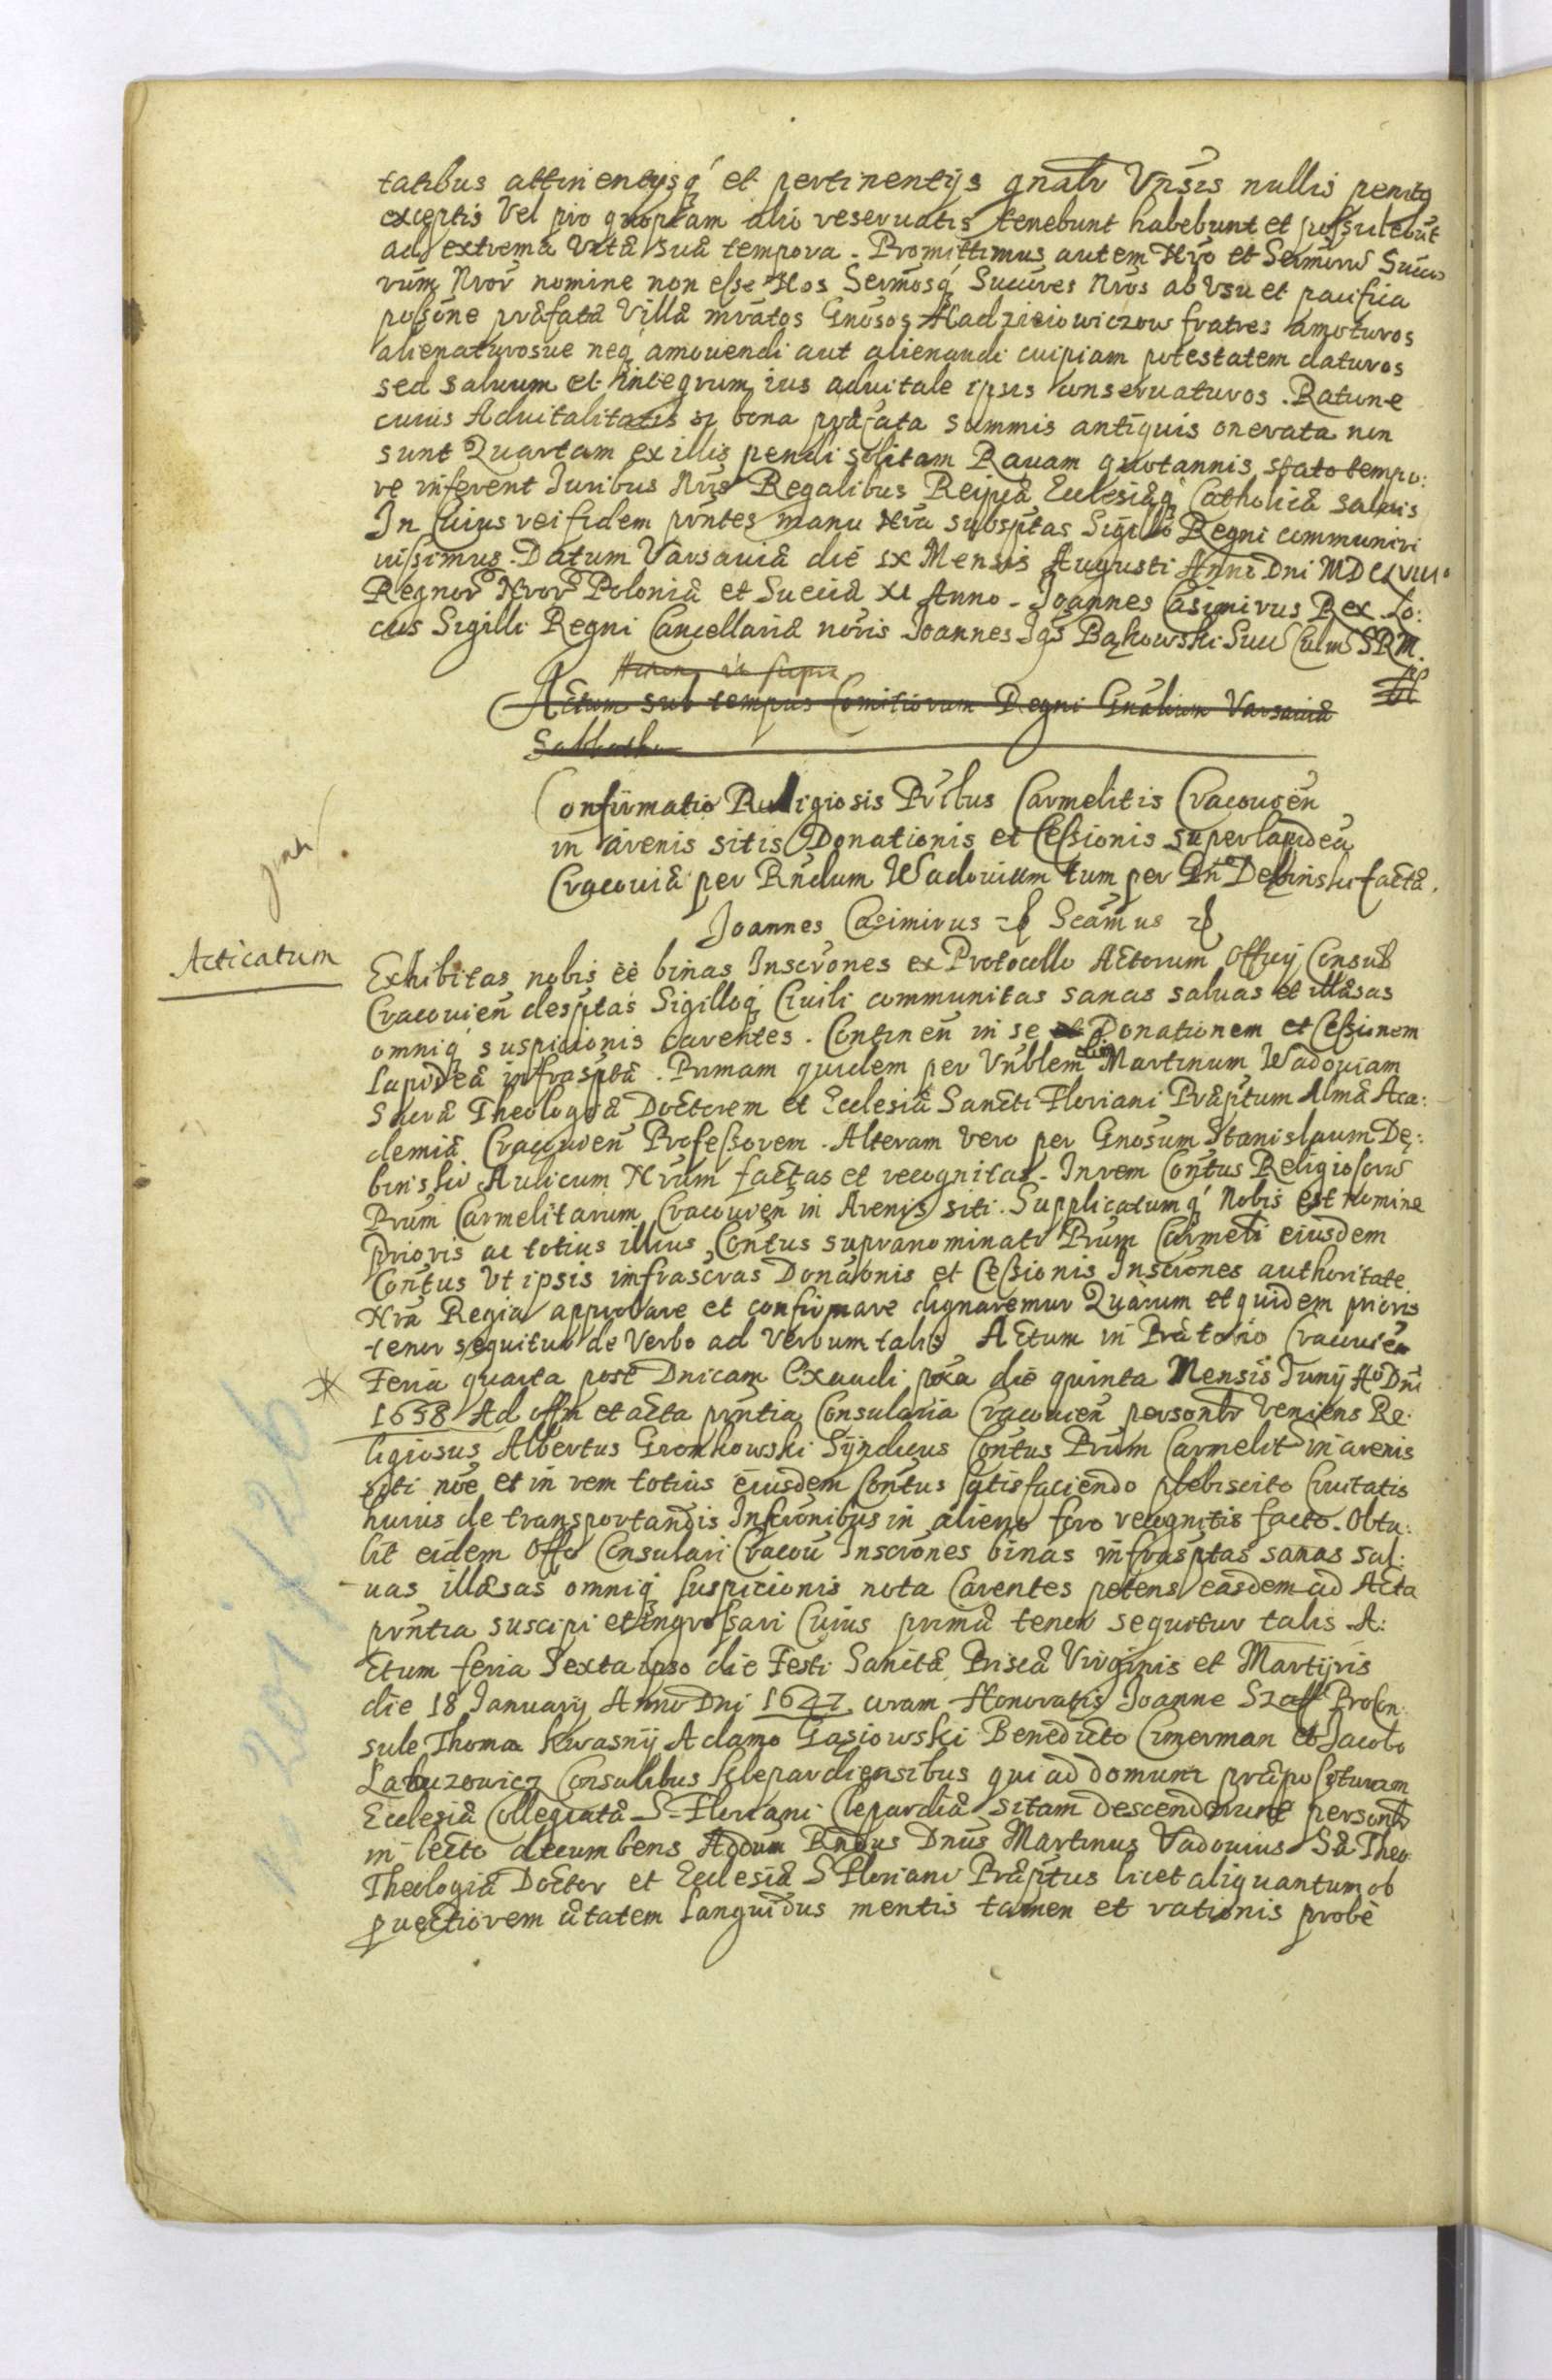 tatibus attinentijsq́ et pertinentijs gnalr Vñsis nullis penitg
exceptis Vel pro quopiam alio reseruatis tenebunt habebunt et possidebũt
ad extrema Vitæ suæ tempora. Promittimus autem Nrõ et Sermorũ Succõ
rum Nror̃ nomine non esse Nos Sermosq́ Succũres Nrõs ab Vsu et pacifica
possõne præfatæ Villæ mrãtos Gnõsos Hadzieiowiczow fratres amoturos
alienaturosue neq́ amouendi aut alienandi cuipiam potestatem daturos
sed saluum et integrum ius aduitale ipsis conseruaturos. Ratione
cuius Aduitalitatis si bona præfata summis antiquis onerata non
sunt Quartam ex illis pendi solitam Rauam quotannis stato tempo:
re inferent Iuribus Nrĩs Regalibus Reipcæ Ecclesiæq́ Catholicæ saluis
In Cuius rei fidem pñtes manu Nrã subsptas Sigillo Regni communiri
iussimus. Datum Varsauiæ die IX Mensis Augusti Anni Dni MDCLVIII.
Regnor̃ Nror̃ Poloniæ et Sueciæ XI Anno. Joannes Casimirus Rex. Lo:
cus Sigilli Regni Cancellariæ noris Joannes Jgs Bąkowski Succ Culm SRM.
Actum ut supra
Actum sub tempus Comitiorum Regni Gnãlium Varsauiæ
Sabbatho
Confirmatio Religiosis Prĩbus Carmelitis Cracouień
in arenis sitis Donationis et Cessionis super lapideã
Cracouiæ per Rndum Wadouium tum per Gń Dębinski factæ.
Joannes Casimirus Scãm us
Acticatum
Exhibitas nobis ẽe binas Inscrõnes ex Protocollo Actorum Officij Consul
Cracouień desptas Sigilloq́ Ciuili communitas sanas saluas et illæsas
omniq́ suspicionis carentes. Continen̄ in se Donationem et Cessionem
Lapideæ infrasptæ. Primam quidem per Vnblem olim Martinum Wadouiam
Sacræ Theologiæ Doctorem et Ecclesiæ Sancti Floriani Præptum Almæ Aca:
demiæ Cracouień Professorem. Alteram vero per Gnõsum Stanislaum Dę:
binski Aulicum Nrũm factas et recognitas. In rem Contus Religiosorũ
Prũm Carmelitarum Cracouień in Arenis siti. Supplicatumq́ Nobis est nomine
Prioris ac totius illius Cõntus supranominatr Prũm Carmeli eiusdem
Cõntus Vt ipsis infrascras Donãonis et Cessionis Inscrõnes authoritate
Nrã Regia approbare et confirmare dignaremur Quarum et quidem prioris
tenor sequitur de Verbo ad Verbum talis. Actum in Prætorio Cracouień
Feria quarta post Dnicam Exaudi pxa die quinta Mensis Junij Ao Dni
1658 Ad offm et acta pñtia Consularia Cracouień personlr Veniens Re:
ligiosus Albertus Gronkowski Sijndicus Cõntus Prũm Carmelit in arenis
siti nõe et in rem totius eiusdem Cõntus satisfaciendo plebiscito Ciuitatis
huius de transportandis Inscrõnibus in alieno foro recognitis facto. Obtu:
lit eidem Offo Consulari Cracou Inscrõnes binas infrasptas sanas sal:
uas illæsas omniq́ suspicionis nota Carentes petens easdem ad Acta
pñtia suscipi et ingrossari Cuius primæ tenor sequitur talis. A:
ctum feria Sexta ipso die Festi Sanctæ Priscæ Virginis et Martijris
die 18 Januarij Anno Dni 1647 coram Honoratis Joanne Szaff Procon:
sule Thoma Kwasnij Adamo Gąsiowski Benedicto Cimerman et Jacobo
Labuzowicz Consulibus Clepardiensibus qui ad domum præposituram
Ecclesiæ Collegiatæ S. Floriani Clepardiæ sitam descenderunt personlr
in lecto decumbens Adm Rndus Dnus Martinus Vadouius Sæ Theo
Theologiæ Doctor et Ecclesiæ S Floriani Præptus licet aliquantum ob
prouectiorem ætatem languidus mentis tamen et rationis probè